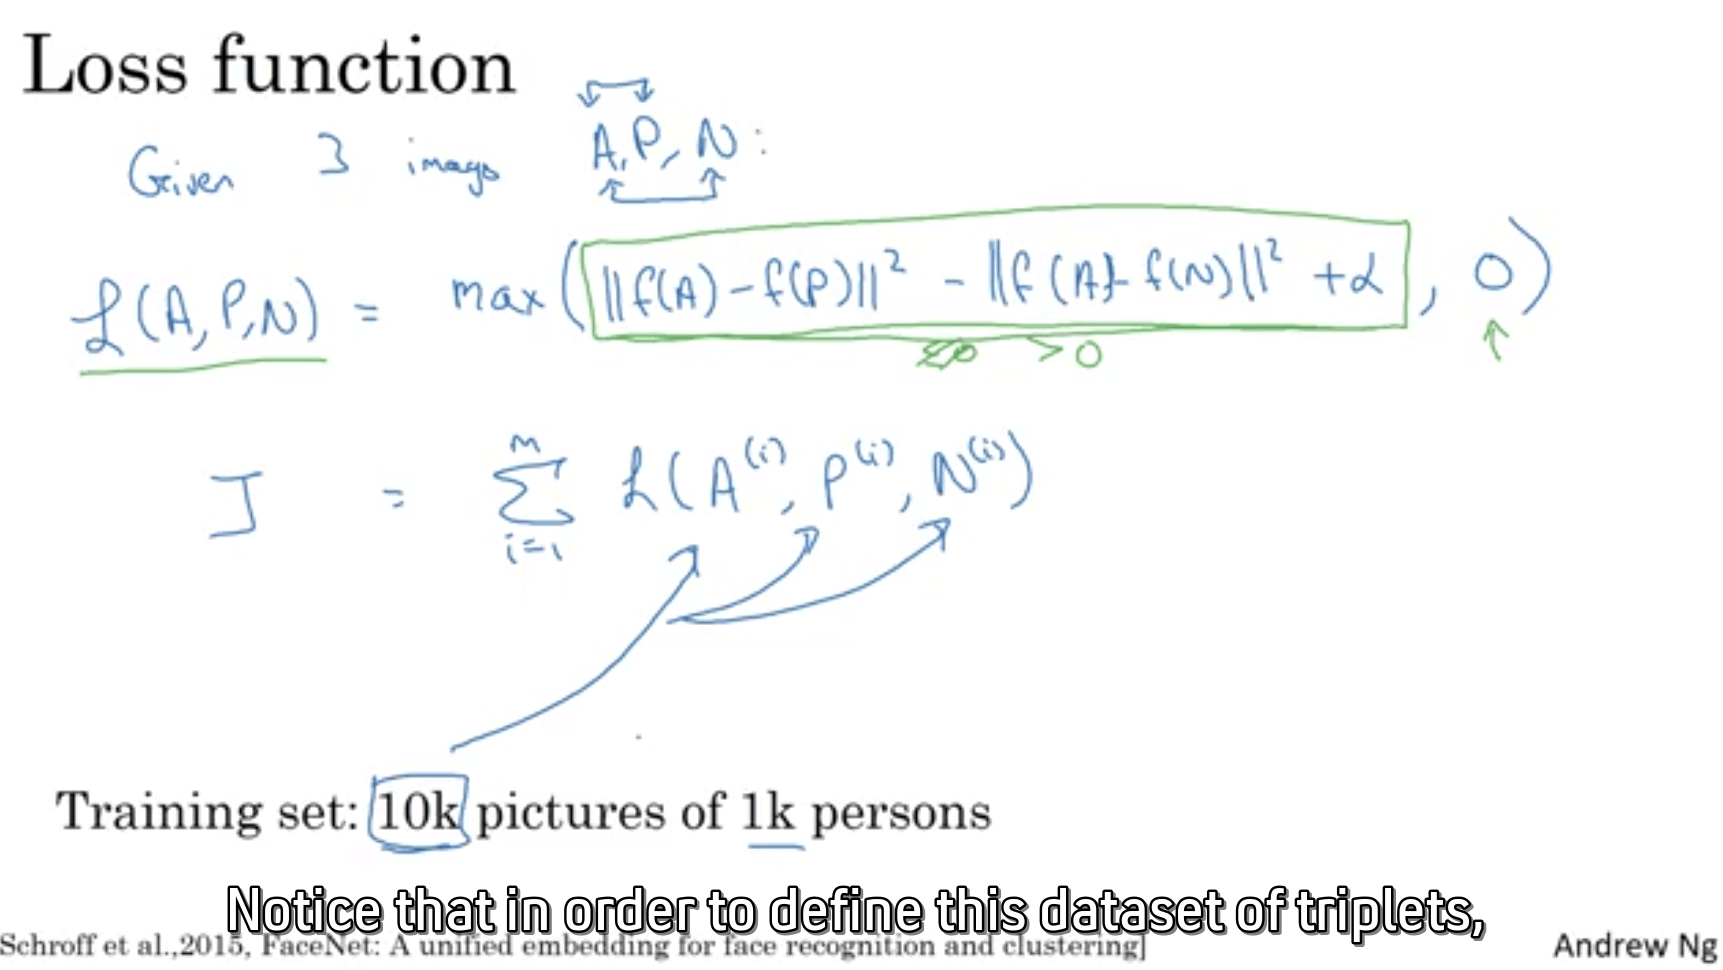 Loss function
Given 3 images A, P, N:
ℒ(A, P, N) = max(||f(A) - f(P)||² - ||f(A) - f(N)||² + α, 0)
> 0 ↑
J = ∑ᵢ₌₁ᵐ ℒ(A⁽ⁱ⁾, P⁽ⁱ⁾, N⁽ⁱ⁾)
Training set: 10k pictures of 1k persons
Notice that in order to define this dataset of triplets,
Schroff et al.,2015, FaceNet: A unified embedding for face recognition and clustering]
Andrew Ng